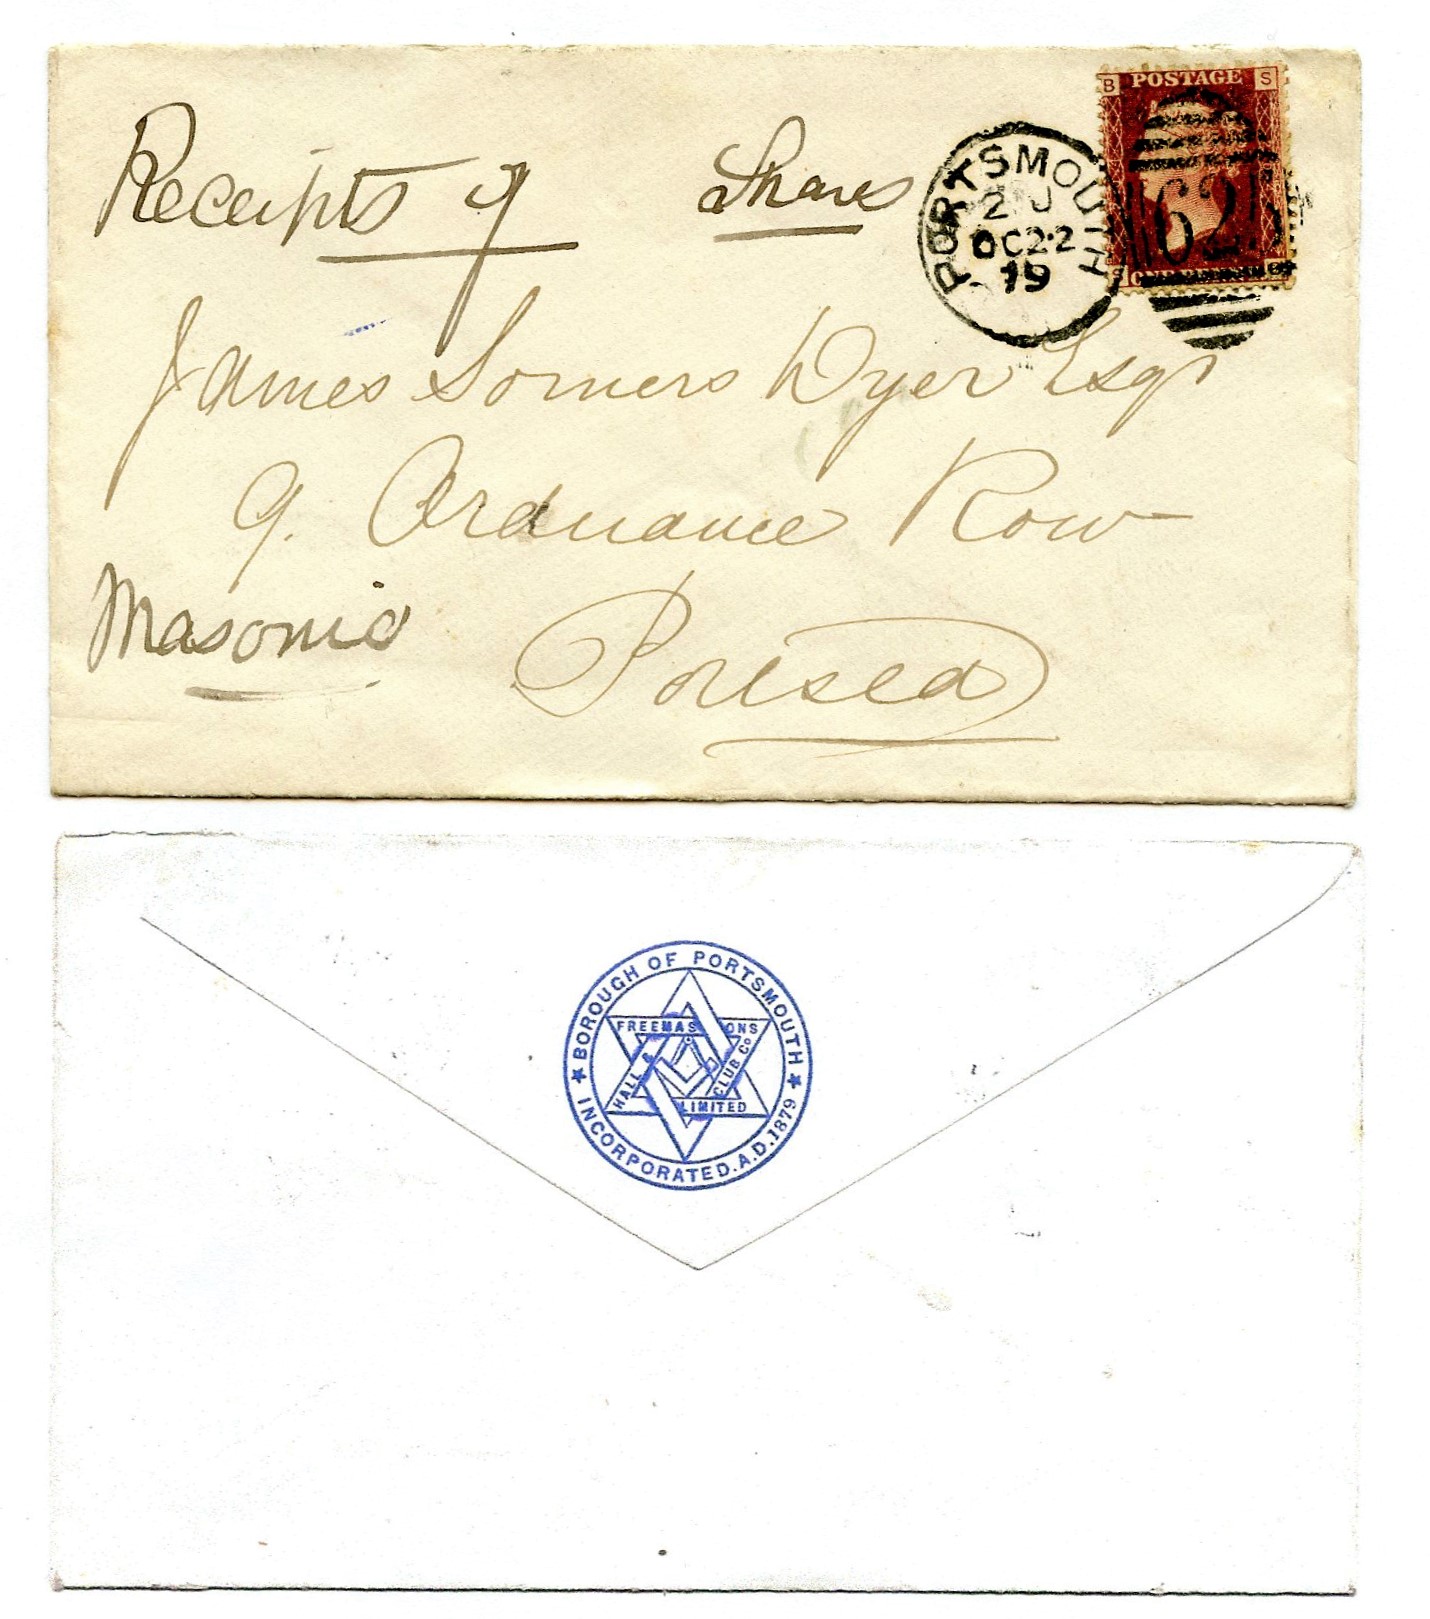 B POSTAGE S
PORTSMOUTH
OC 22
79
625
Receipts of Shares
James Somers Dyer Esqr
9. Ordnance Row
Masonic
Portsea
BOROUGH OF PORTSMOUTH
FREEMASONS
HALL & CLUB Co
LIMITED
INCORPORATED. A.D. 1879